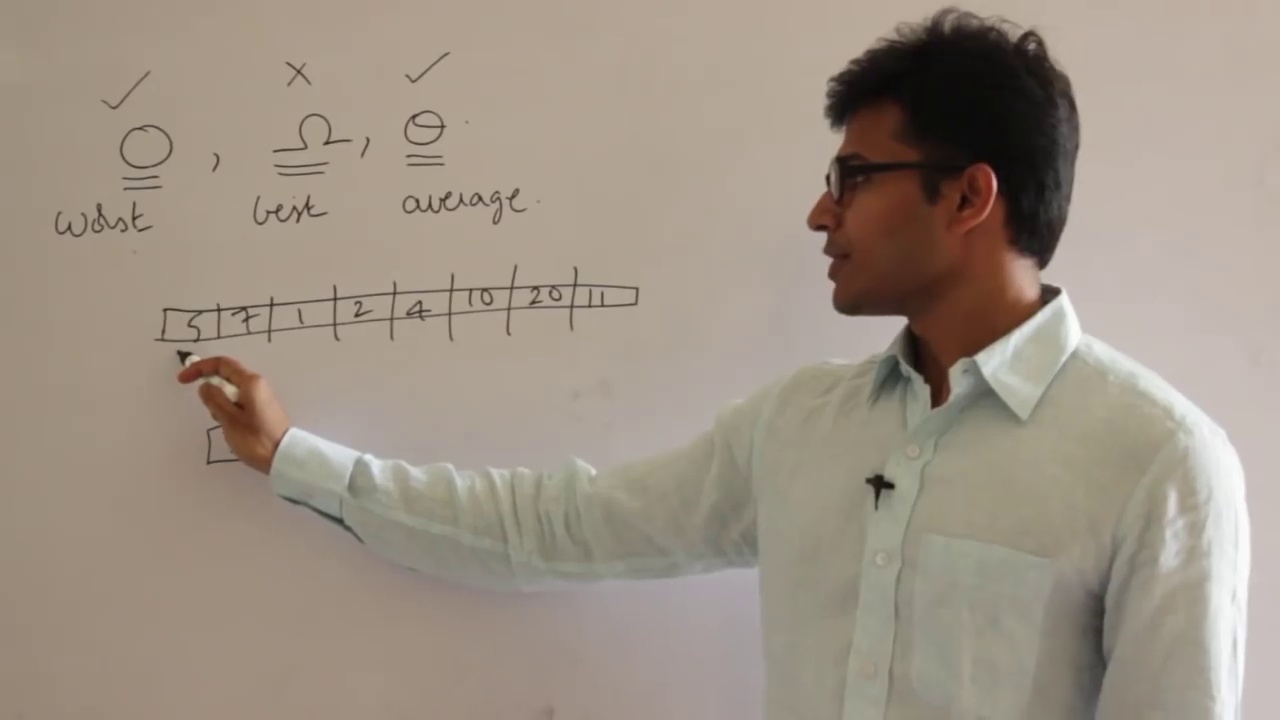 ✓ × ✓
O, Ω, Θ
worst best average.
5 7 1 2 4 10 20 11